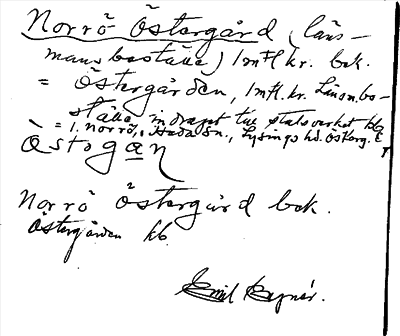 Norrö Östergård (läns-
mansboställe) 1 mtl kr. bok.
= Östergården, 1 mtl. kr. Länsm.bo-
ställe, indraget till statsverket
= 1. Norrö, Heda sn., Lysings hd. Österg.
Östogan
Norrö Östergård bok.
Östergården kb.
Emil